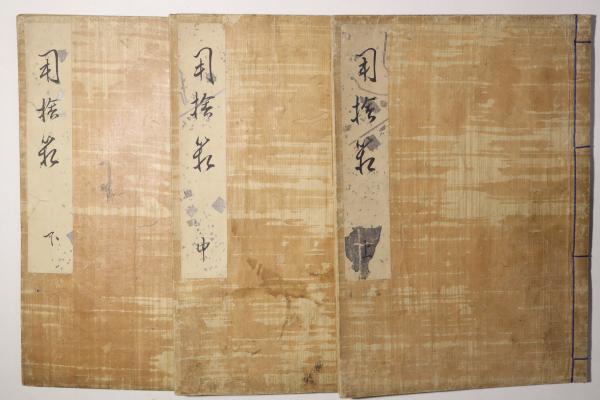 用捨箱 上
用捨箱 中
用捨箱 下